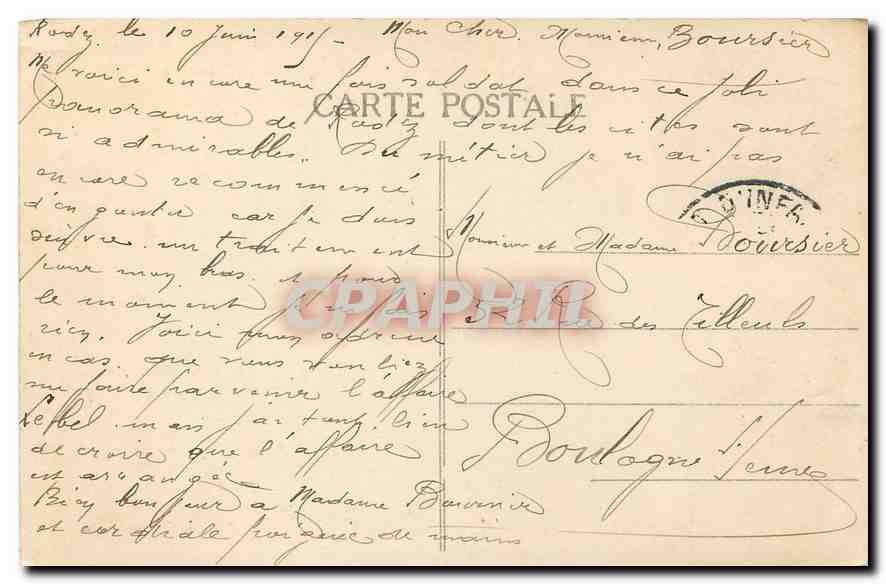 Rodez, le 10 Juin 1915 – Mon Cher Monsieur, Boursier
Me voici encore une fois soldat dans ce joli
CARTE POSTALE
panorama de Rodez dont les sites sont
si admirables. Du métier je n'ai pas
encore recommencé
car je dois
suivre un traitement
pour mon bras et pour
le moment je ne fais
rien. Voici mon adresse
en cas que vous vouliez
me faire parvenir l'affaire
Lebel mais j'ai tout lieu
de croire que l'affaire
est arrangée
Bien bonjour à Madame Boursier
et cordiale poignée de mains
D'INF
Monsieur et Madame Boursier
rue des Tilleuls
Boulogne s/ Seine
CPAPHII